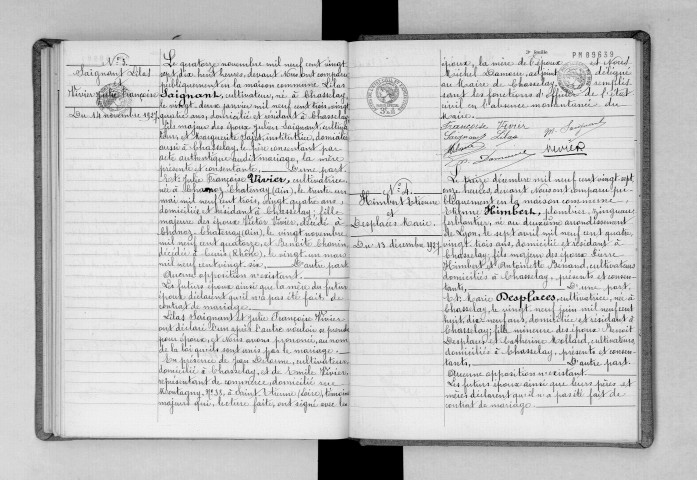 N° 3.
Saignant Lilas
et
Vivier Julie Françoise
Du 14 novembre 1927
Le quatorze novembre mil neuf cent vingt
sept, dix huit heures, devant Nous ont comparu
publiquement en la maison commune Lilas
Saignant, cultivateur, né à Chasselay,
le vingt deux janvier mil neuf cent trois, vingt
quatre ans, domicilié et résidant à Chasselay
fils majeur des époux Julien Saignant, cultiva
teur et Marguerite institutrice, domiciliés
à Chasselay, le père consentant par
acte authentique audit mariage, la mère
présente et consentante. D'une part.
Et: Julie Françoise Vivier, cultivatrice,
née à Chatenay (ain), le trente un
mai mil neuf cent trois, vingt quatre ans,
domiciliée et résidant à Chasselay; fille
majeure des époux Victor Vivier, décédé à
Chatenay (ain), le vingt novembre
mil neuf cent quatorze, et Benoite Chanin
décédée à (Rhône), le vingt un mars
mil neuf cent vingt six. D'autre part
Aucune opposition n'existant.
Les futurs époux ainsi que la mère du futur
époux déclarent qu'il n'a pas été fait de
contrat de mariage.
Lilas Saignant et Julie Françoise Vivier
ont déclaré l'un après l'autre vouloir se prendre
pour époux, et Nous avons prononcé, au nom
de la loi qu'ils sont unis par le mariage.
En présence de Jean Delorme, cultivateur,
domicilié à Chasselay, et de Emile Vivier,
représentant de commerce, domicilié rue
Montagny, N° 31, à Saint Etienne (Loire), témoins
majeurs qui, lecture faite, ont signé avec les
époux, la mère de l'époux et Nous
Michel Damour, adjoint délégué
au Maire de Chasselay remplis
sant les fonctions d'officier de l'état
civil en l'absence momentanée du
Maire.
Françoise Vivier
Saignant Lilas
VIVIER
N° 4.
Himbert Etienne
et
Desplaces Marie.
Du 13 décembre 1927.
Le treize décembre mil neuf cent vingt sept
onze heures, devant Nous ont comparu pu
bliquement en la maison commune
Etienne Himbert, plombier, zingueur,
ferblantier, né au deuxième arrondissement
de Lyon, le sept avril mil neuf cent quatre
vingt trois ans, domicilié et résidant à
Chasselay, fils majeur des époux Pierre
Himbert et Antoinette cultivateurs
domiciliés à Chasselay, présents et consen
tants, D'une part.
Et: Marie Desplaces, cultivatrice, née à
Chasselay, le vingt neuf juin mil neuf cent
huit, dix neuf ans, domiciliée et résidant à
Chasselay; fille mineure des époux Benoit
Desplaces et Catherine Mollard, cultivateurs
domiciliés à Chasselay, présents et consen
tants, D'autre part.
Aucune opposition n'existant.
Les futurs époux ainsi que leurs pères et
mères déclarent qu'il n'a pas été fait de
contrat de mariage.